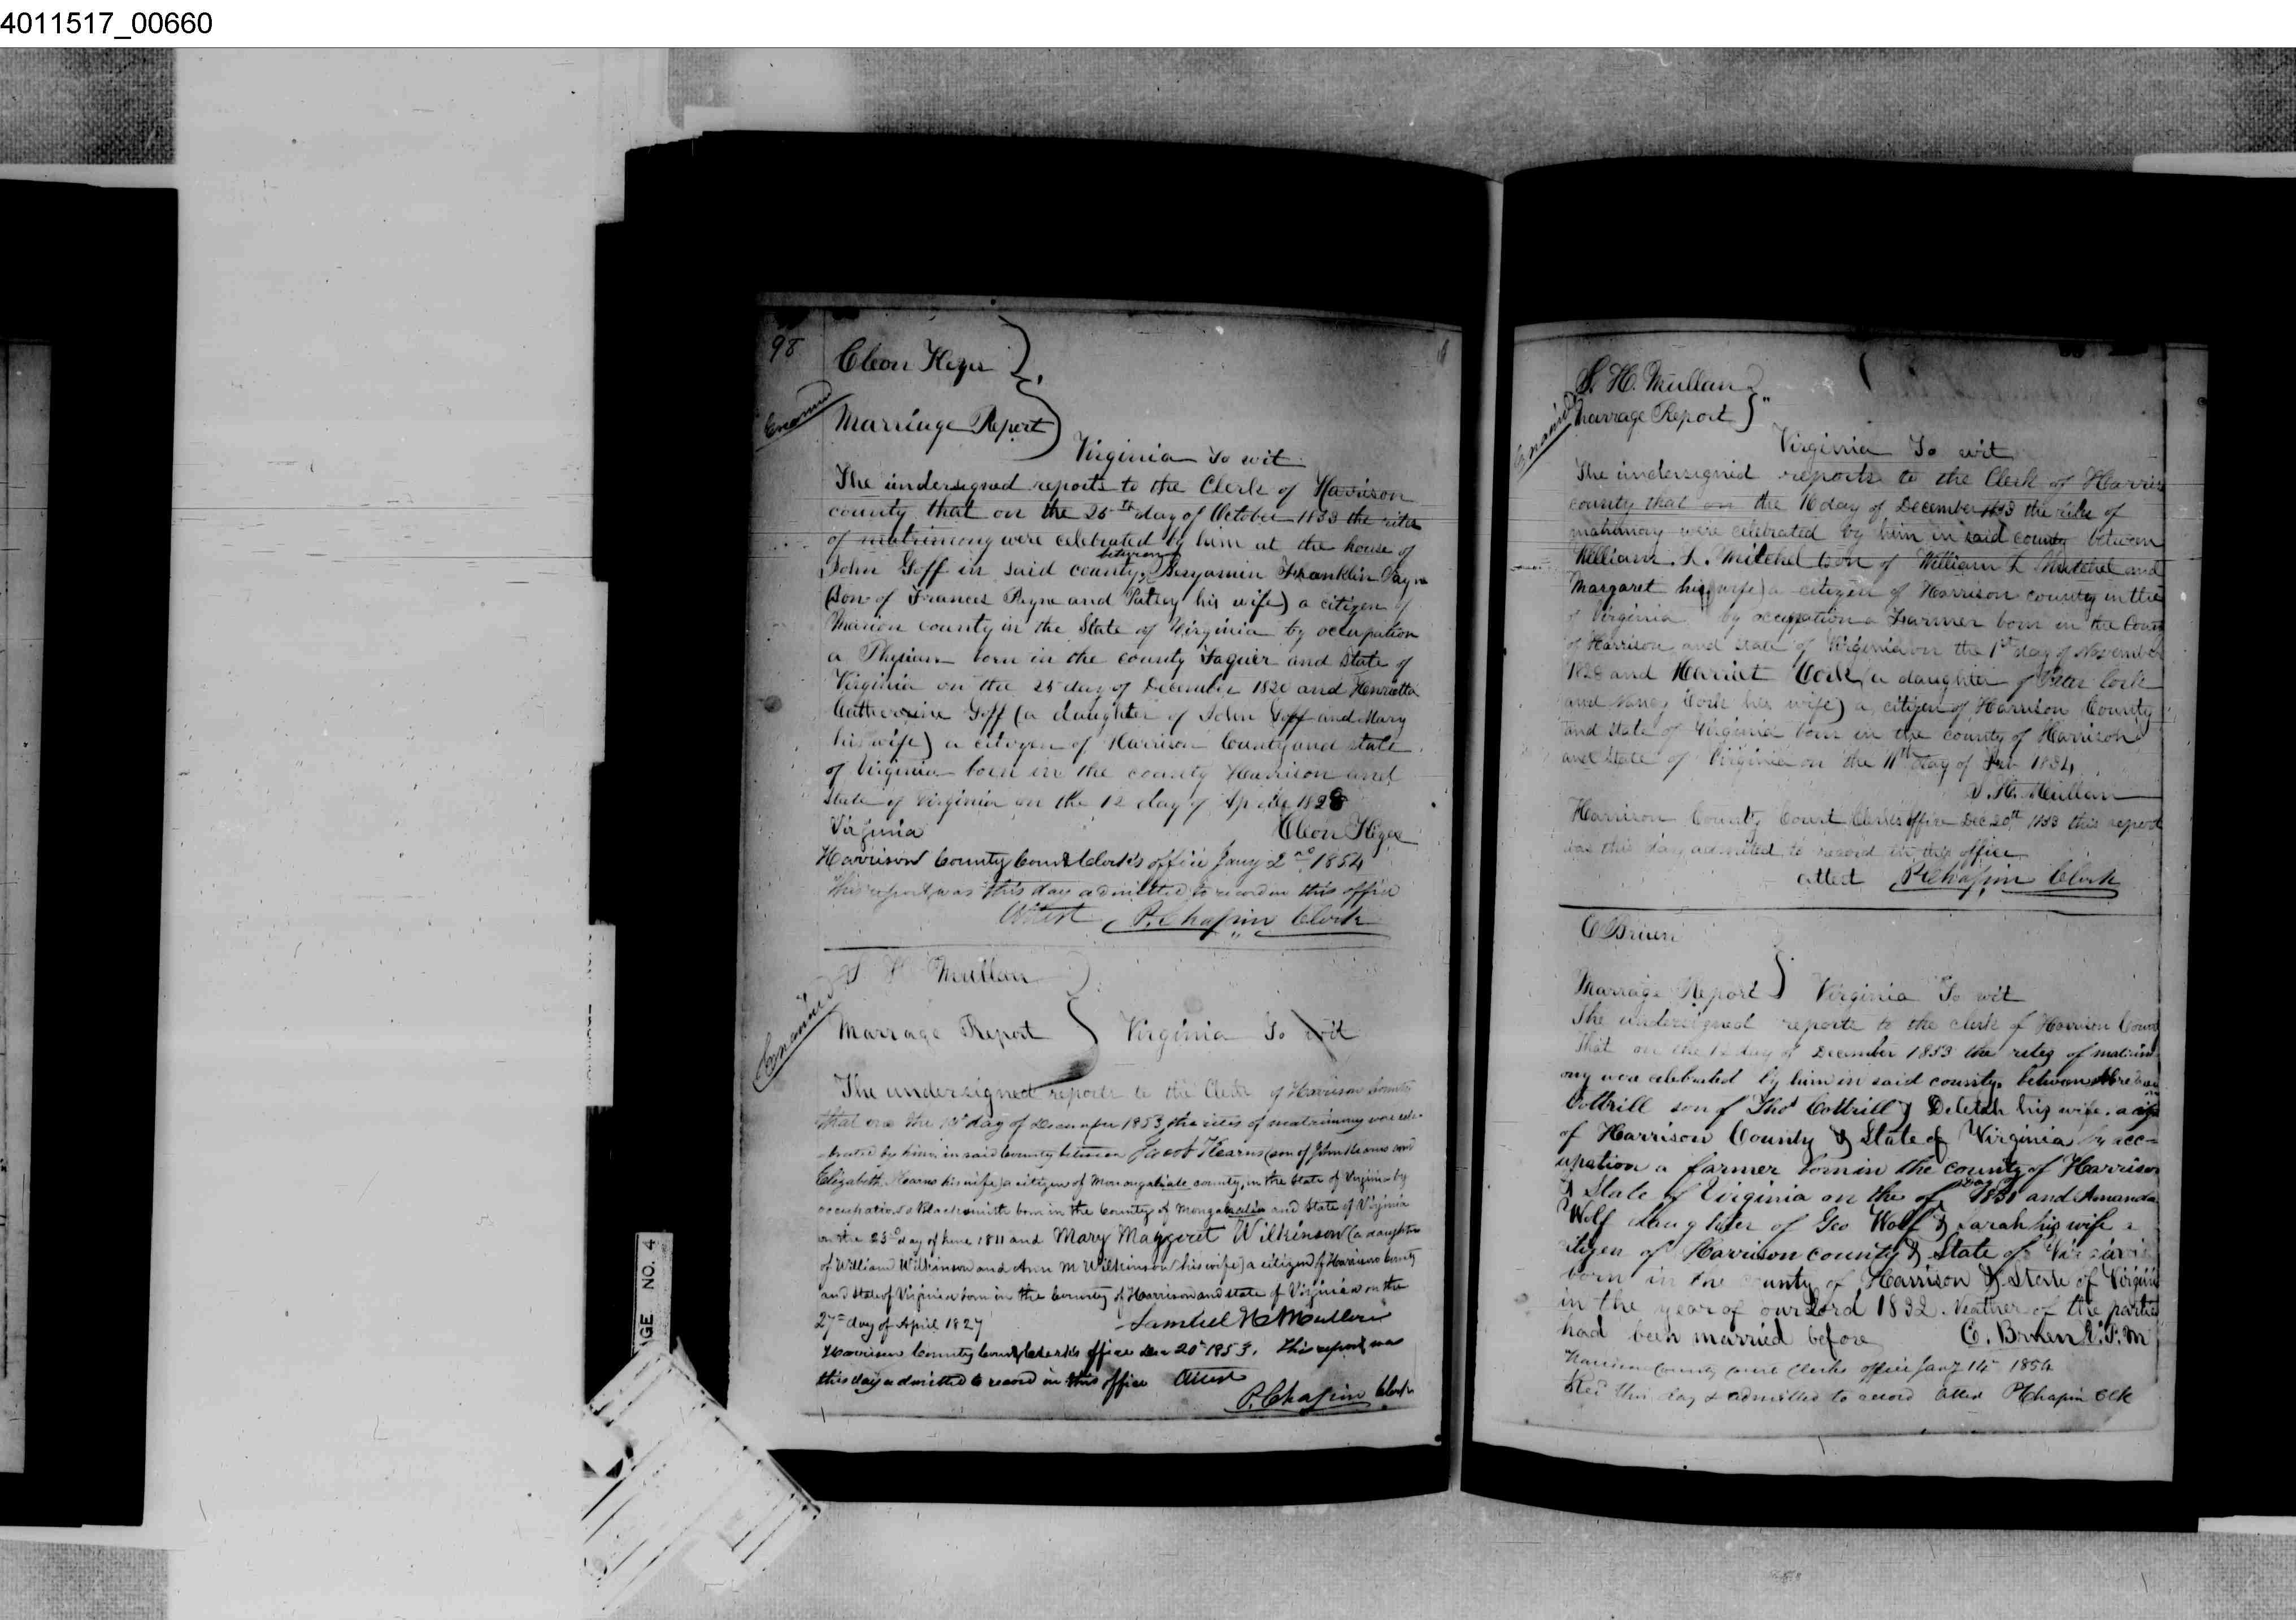 4011517_00660
98
Cleon Keyes
Examined
Marriage Report
Virginia To wit
The undersigned reports to the Clerk of Harrison
county that on the 25th day of October 1853 the rites
of matrimony were celebrated by him at the house of
between
John Goff in said county, Benjamin Franklin Payne
(Son of Frances Payne and Patsey his wife) a citizen of
Marion county in the State of Virginia by occupation
a born in the county Faquier and State of
Virginia on the 25 day of December 1820 and Henrietta
Catherine Goff (a daughter of John Goff and Mary
his wife) a citizen of Harrison County and state
of Virginia born in the county Harrison and
State of Virginia on the 12 day of April 1828
Virginia Cleon Keyes
Harrison County Court Clerk's office Jany 2nd 1854
This report was this day admitted to record in this office
Attest P. Chapin Clerk
S H Mullan
Examined
Marrage Report Virginia To wit
The undersigned reports to the Clerk of Harrison County
that on the day of December 1853 the rites of matrimony were cele-
brated by him in said County between Jacob Kearns (son of John Kearns and
Elizabeth Kearns his wife) a citizen of county, in the State of Virginia by
occupation a Blacksmith born in the County of and State of Virginia
on the 23d day of June 1811 and Mary Margaret Wilkinson (a daughter
of William Wilkinson and Ann M Wilkinson his wife) a citizen of Harrison County
and state of Virginia born in the County of Harrison and state of Virginia on the
27th day of April 1827 Samuel H Mullan
Harrison County Court Clerk's office Dec 20th 1853. This report was
this day admitted to record in this office Attest
P. Chapin Clerk
S. H. Mullan
Examined
Marrage Report
Virginia To wit
The undersigned reports to the Clerk of Harris
county that on the 16 day of December 1853 the rites of
matrimony were celebrated by him in said county between
William L. Mitchel (son of William L Mitchel and
Margaret his wife) a citizen of Harrison county in the
of Virginia by occupation a Farmer born in the Coun
of Harrison and state of Virginia on the 1st day of November
1828 and Harriet Cork (a daughter of Cork
and Nancy Cork his wife) a citizen of Harrison County
and state of Virginia born in the county of Harrison
and State of Virginia on the 11th day of 1834
S. H. Mullan
Harrison County Court Clerks office Dec 20th 1853 this report
was this day admitted to record in this office
attest P. Chapin Clerk
C Brien
Marrage Report Virginia To wit
The undersigned reports to the clerk of Harrison Coun
that on the 12 day of December 1853 the rites of matrim-
ony were celebrated by him in said county, between
Cottrill son of Thos Cottrill & Deletah his wife, a
of Harrison County & State of Virginia by occ-
upation a farmer born in the county of Harrison
& State of Virginia on the of day of 1831 and Amanda
Wolf daughter of Geo Wolf & Sarah his wife a
citizen of Harrison county & State of Virginia
born in the county of Harrison & State of Virginia
in the year of our Lord 1832. Neather of the partie
had been married before C. Brien
Harrison County court clerks office Jany 14th 1854
Recd this day & admitted to record Attest P Chapin Clk
GE NO. 4